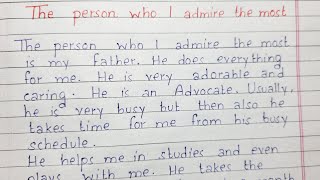 The person who I admire the most
The person who I admire the most
is my father. He does everything
for me. He is very adorable and
caring. He is an Advocate. Usually,
he is very busy but then also he
takes time for me from his busy
schedule.
He helps me in studies and even
plays with me. He takes the
month